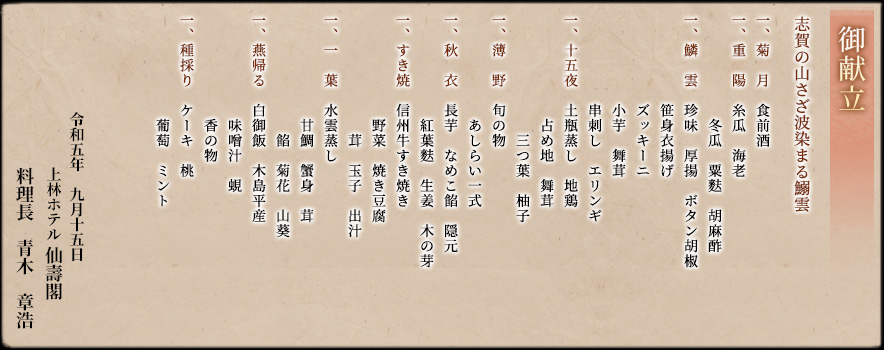 御献立
志賀の山さざ波染まる鰯雲
一、菊月 食前酒
一、重陽 糸瓜 海老
冬瓜 粟麩 胡麻酢
一、鱗雲 珍味 厚揚 ボタン胡椒
笹身衣揚げ
ズッキーニ
小芋 舞茸
串刺し エリンギ
一、十五夜 土瓶蒸し 地鶏
占め地 舞茸
三つ葉 柚子
一、薄野 旬の物
あしらい一式
一、秋衣 長芋 なめこ餡 隠元
紅葉麩 生姜 木の芽
一、すき焼 信州牛すき焼き
野菜 焼き豆腐
茸 玉子 出汁
一、一葉 水雲蒸し
甘鯛 蟹身 茸
餡 菊花 山葵
一、燕帰る 白御飯 木島平産
味噌汁 蜆
香の物
一、種採り ケーキ 桃
葡萄 ミント
令和五年 九月十五日
上林ホテル 仙壽閣
料理長 青木 章浩